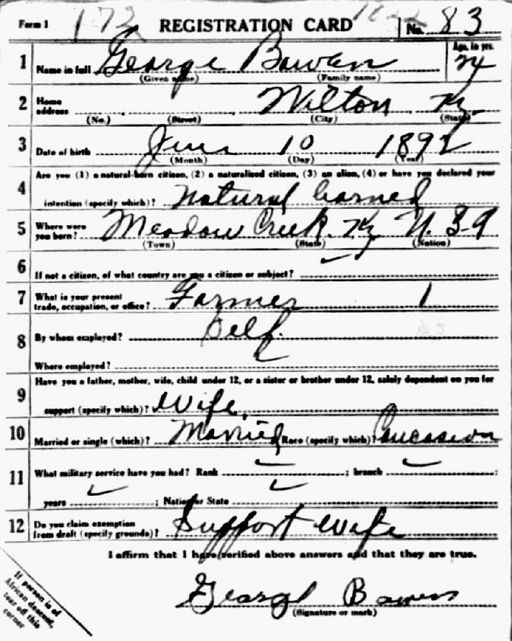 Form 1 173 REGISTRATION CARD No. 83
1 Name in full George Bowen Age, in yrs. 24
(Given name) (Family name)
2 Home address Wilton Ky.
(No.) (Street) (City) (State)
3 Date of birth June 10 1892
(Month) (Day) (Year)
Are you (1) a natural-born citizen, (2) a naturalized citizen, (3) an alien, (4) or have you declared your
4 intention (specify which)? Natural borned
5 Where were you born? Meadow Creek Ky U.S.A
(Town) (State) (Nation)
6 If not a citizen, of what country are you a citizen or subject?
7 What is your present trade, occupation, or office? Farmer 1
8 By whom employed? Self
Where employed?
9 Have you a father, mother, wife, child under 12, or a sister or brother under 12, solely dependent on you for
support (specify which)? Wife
10 Married or single (which)? Married Race (specify which)? Caucasion
11 What military service have you had? Rank ; branch ;
years ; Nation or State
12 Do you claim exemption from draft (specify grounds)? Support wife
I affirm that I have verified above answers and that they are true.
George Bowen
(Signature or mark)
If person is of
African descent,
tear off this
corner